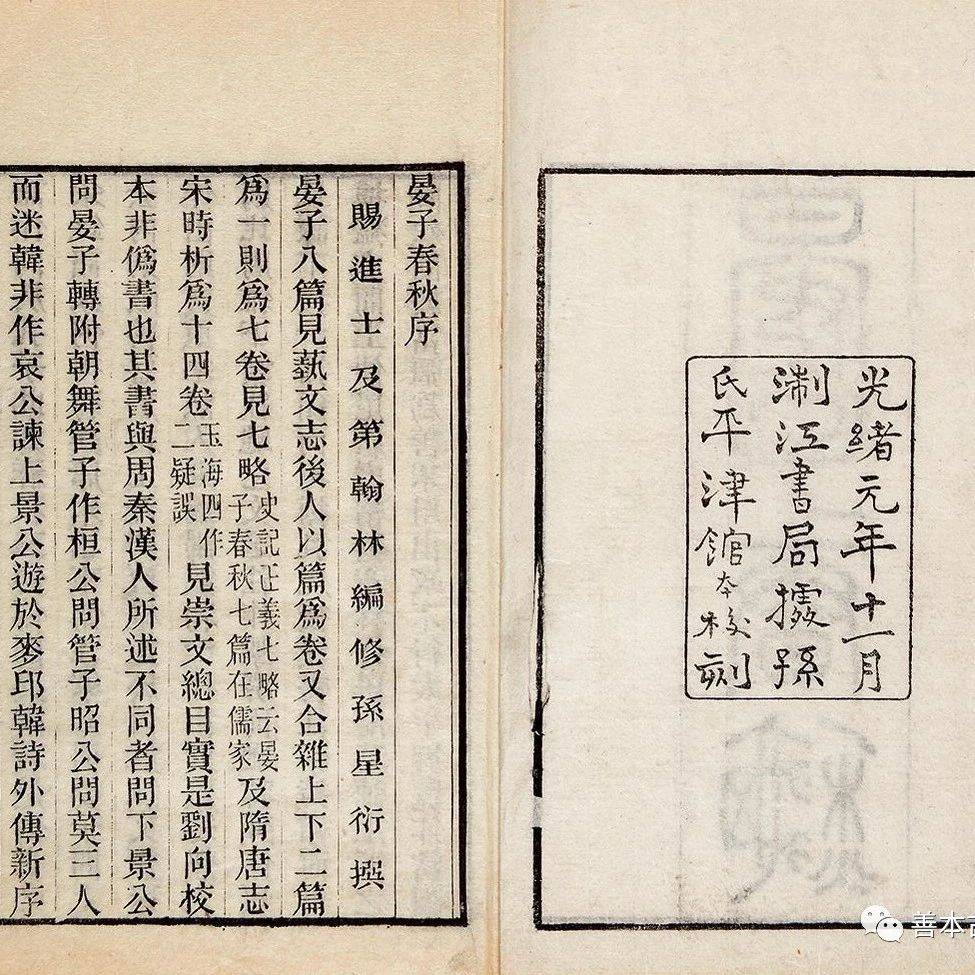 光緒元年十一月
淛江書局㨿孫
氏平津館本校刻
晏子春秋序
賜進士及第翰林編修孫星衍撰
晏子八篇見蓺文志後人以篇爲卷又合雜上下二篇
爲一則爲七卷見七略史記正義七略云晏子春秋七篇在儒家及隋唐志
宋時析爲十四卷玉海四作二疑誤見崇文總目實是劉向校
本非僞書也其書與周秦漢人所述不同者問下景公
問晏子轉附朝舞管子作桓公問管子昭公問莫三人
而迷韓非作哀公諫上景公遊於麥邱韓詩外傳新序
善本古